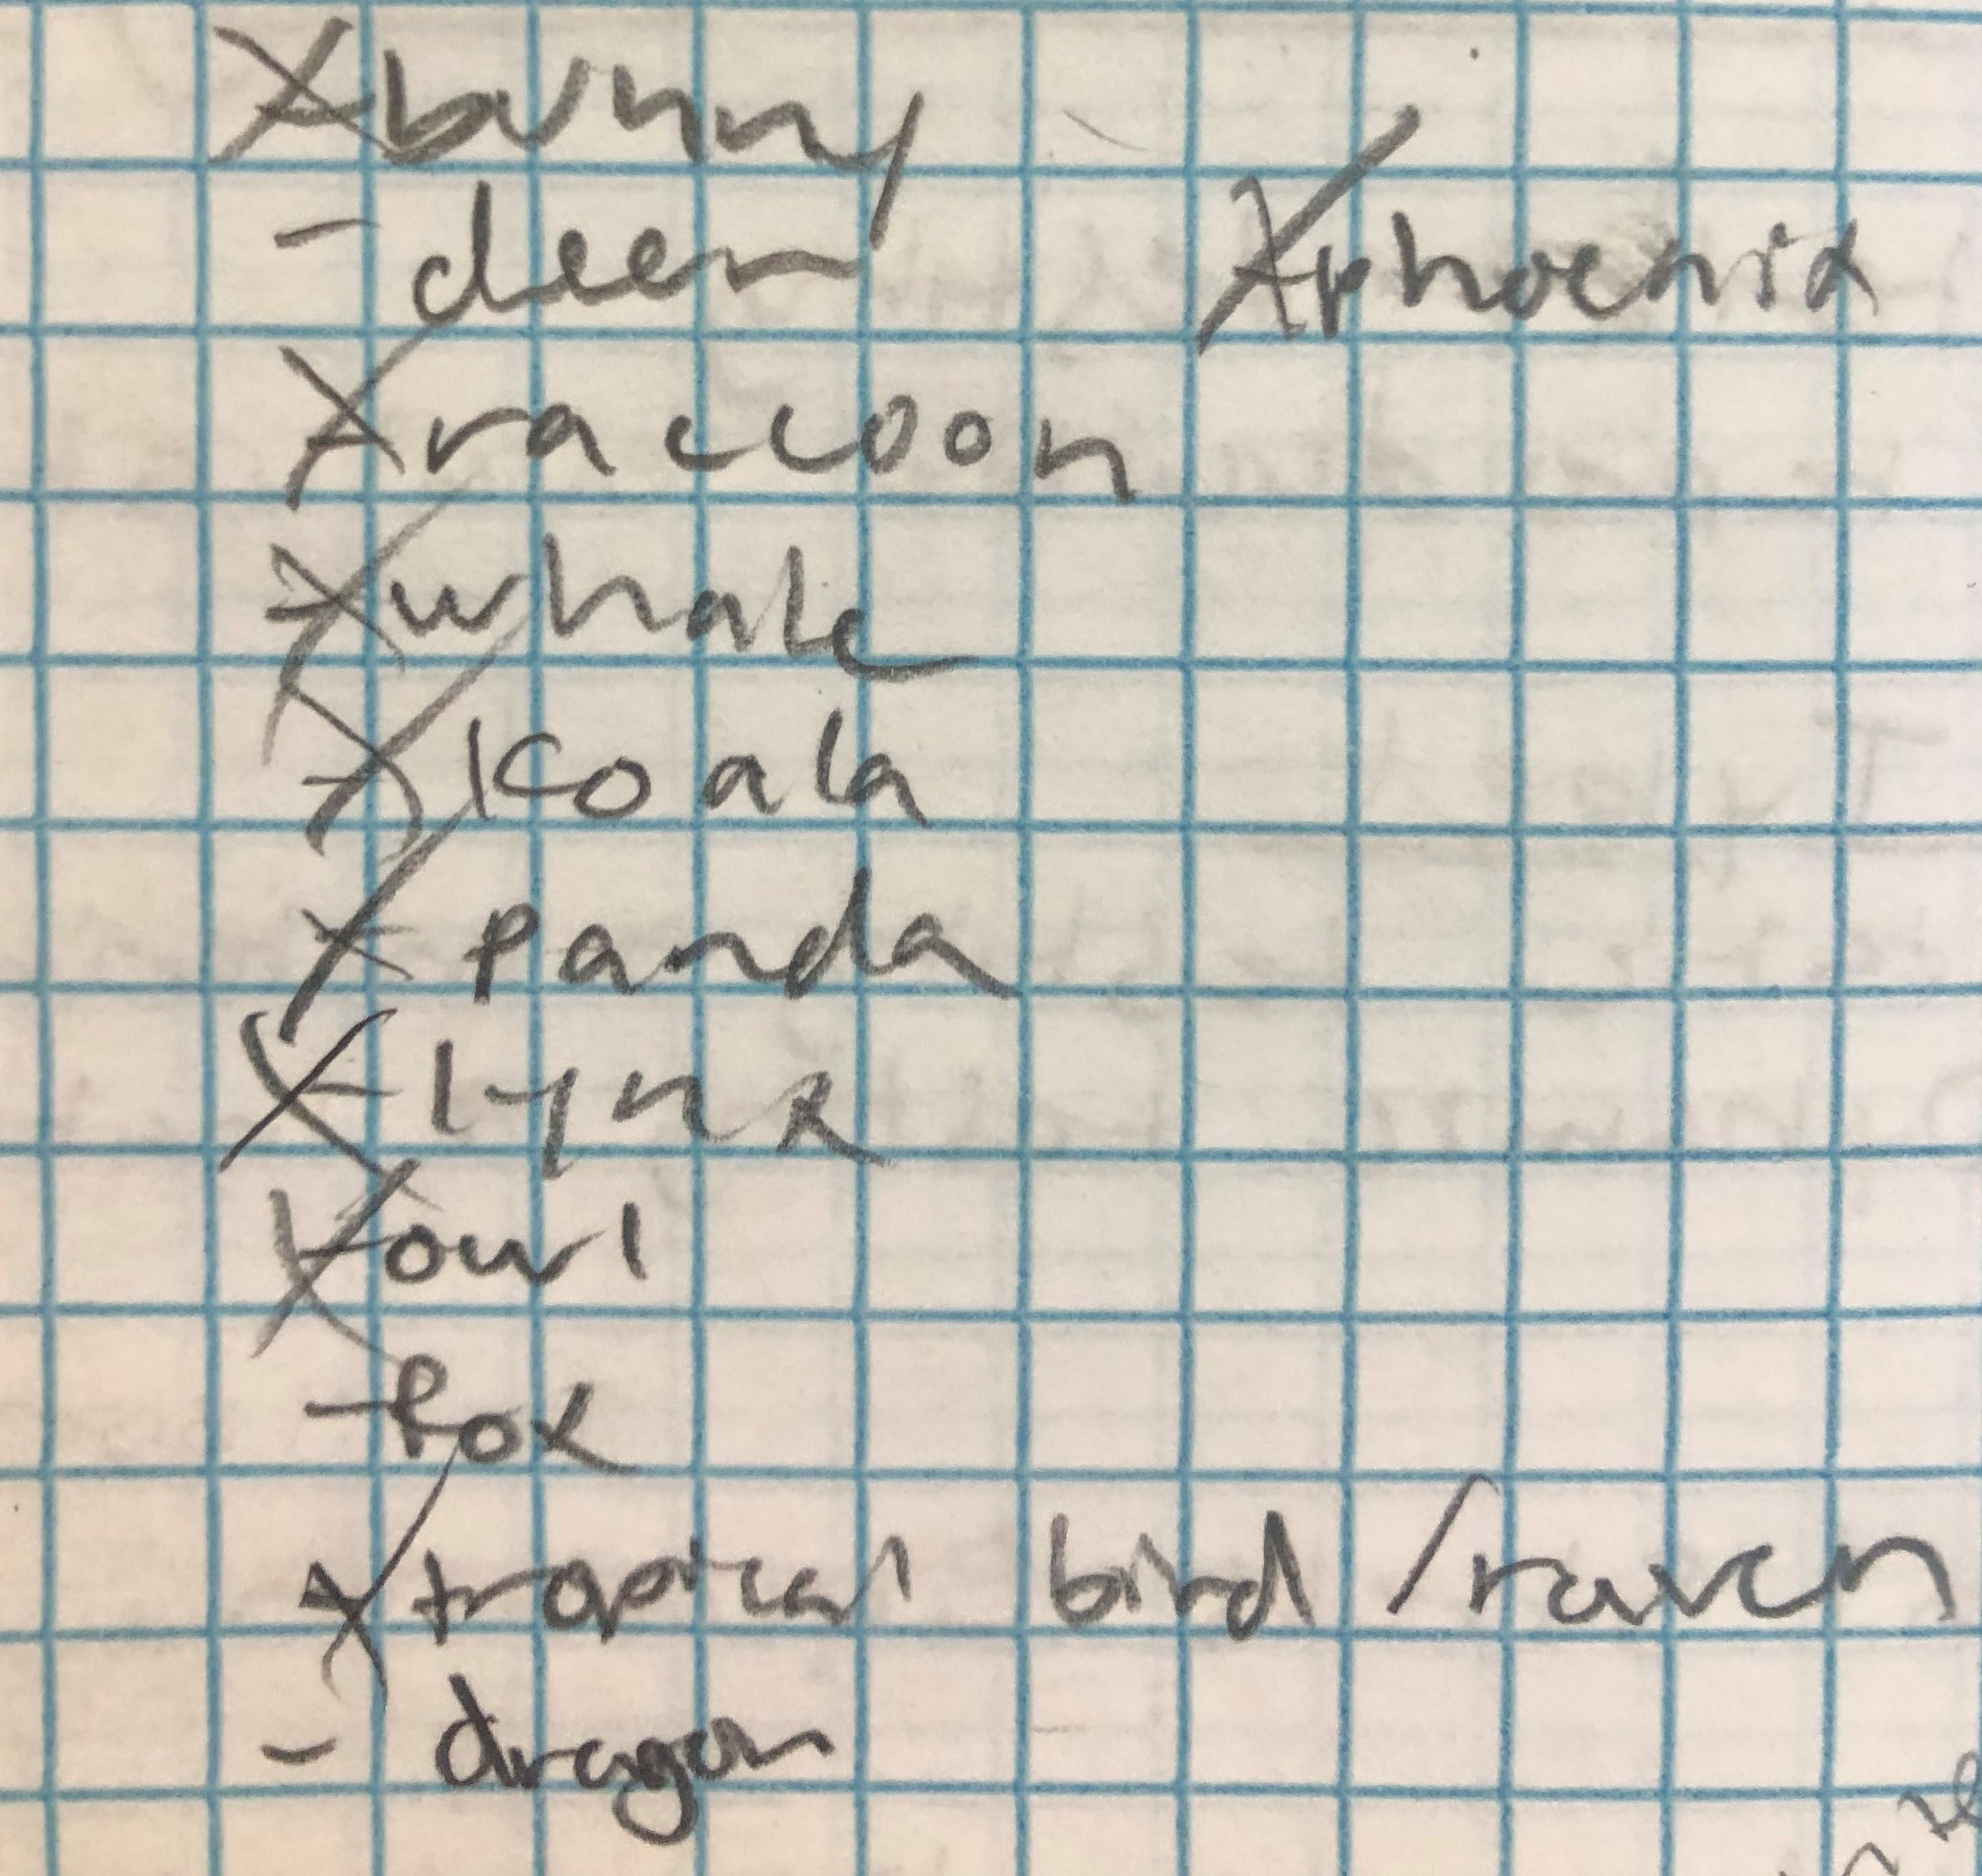 X bunny
- deer
X phoenix
X raccoon
X whale
X koala
X panda
X lynx
X owl
- fox
X tropical bird / raven
- dragon